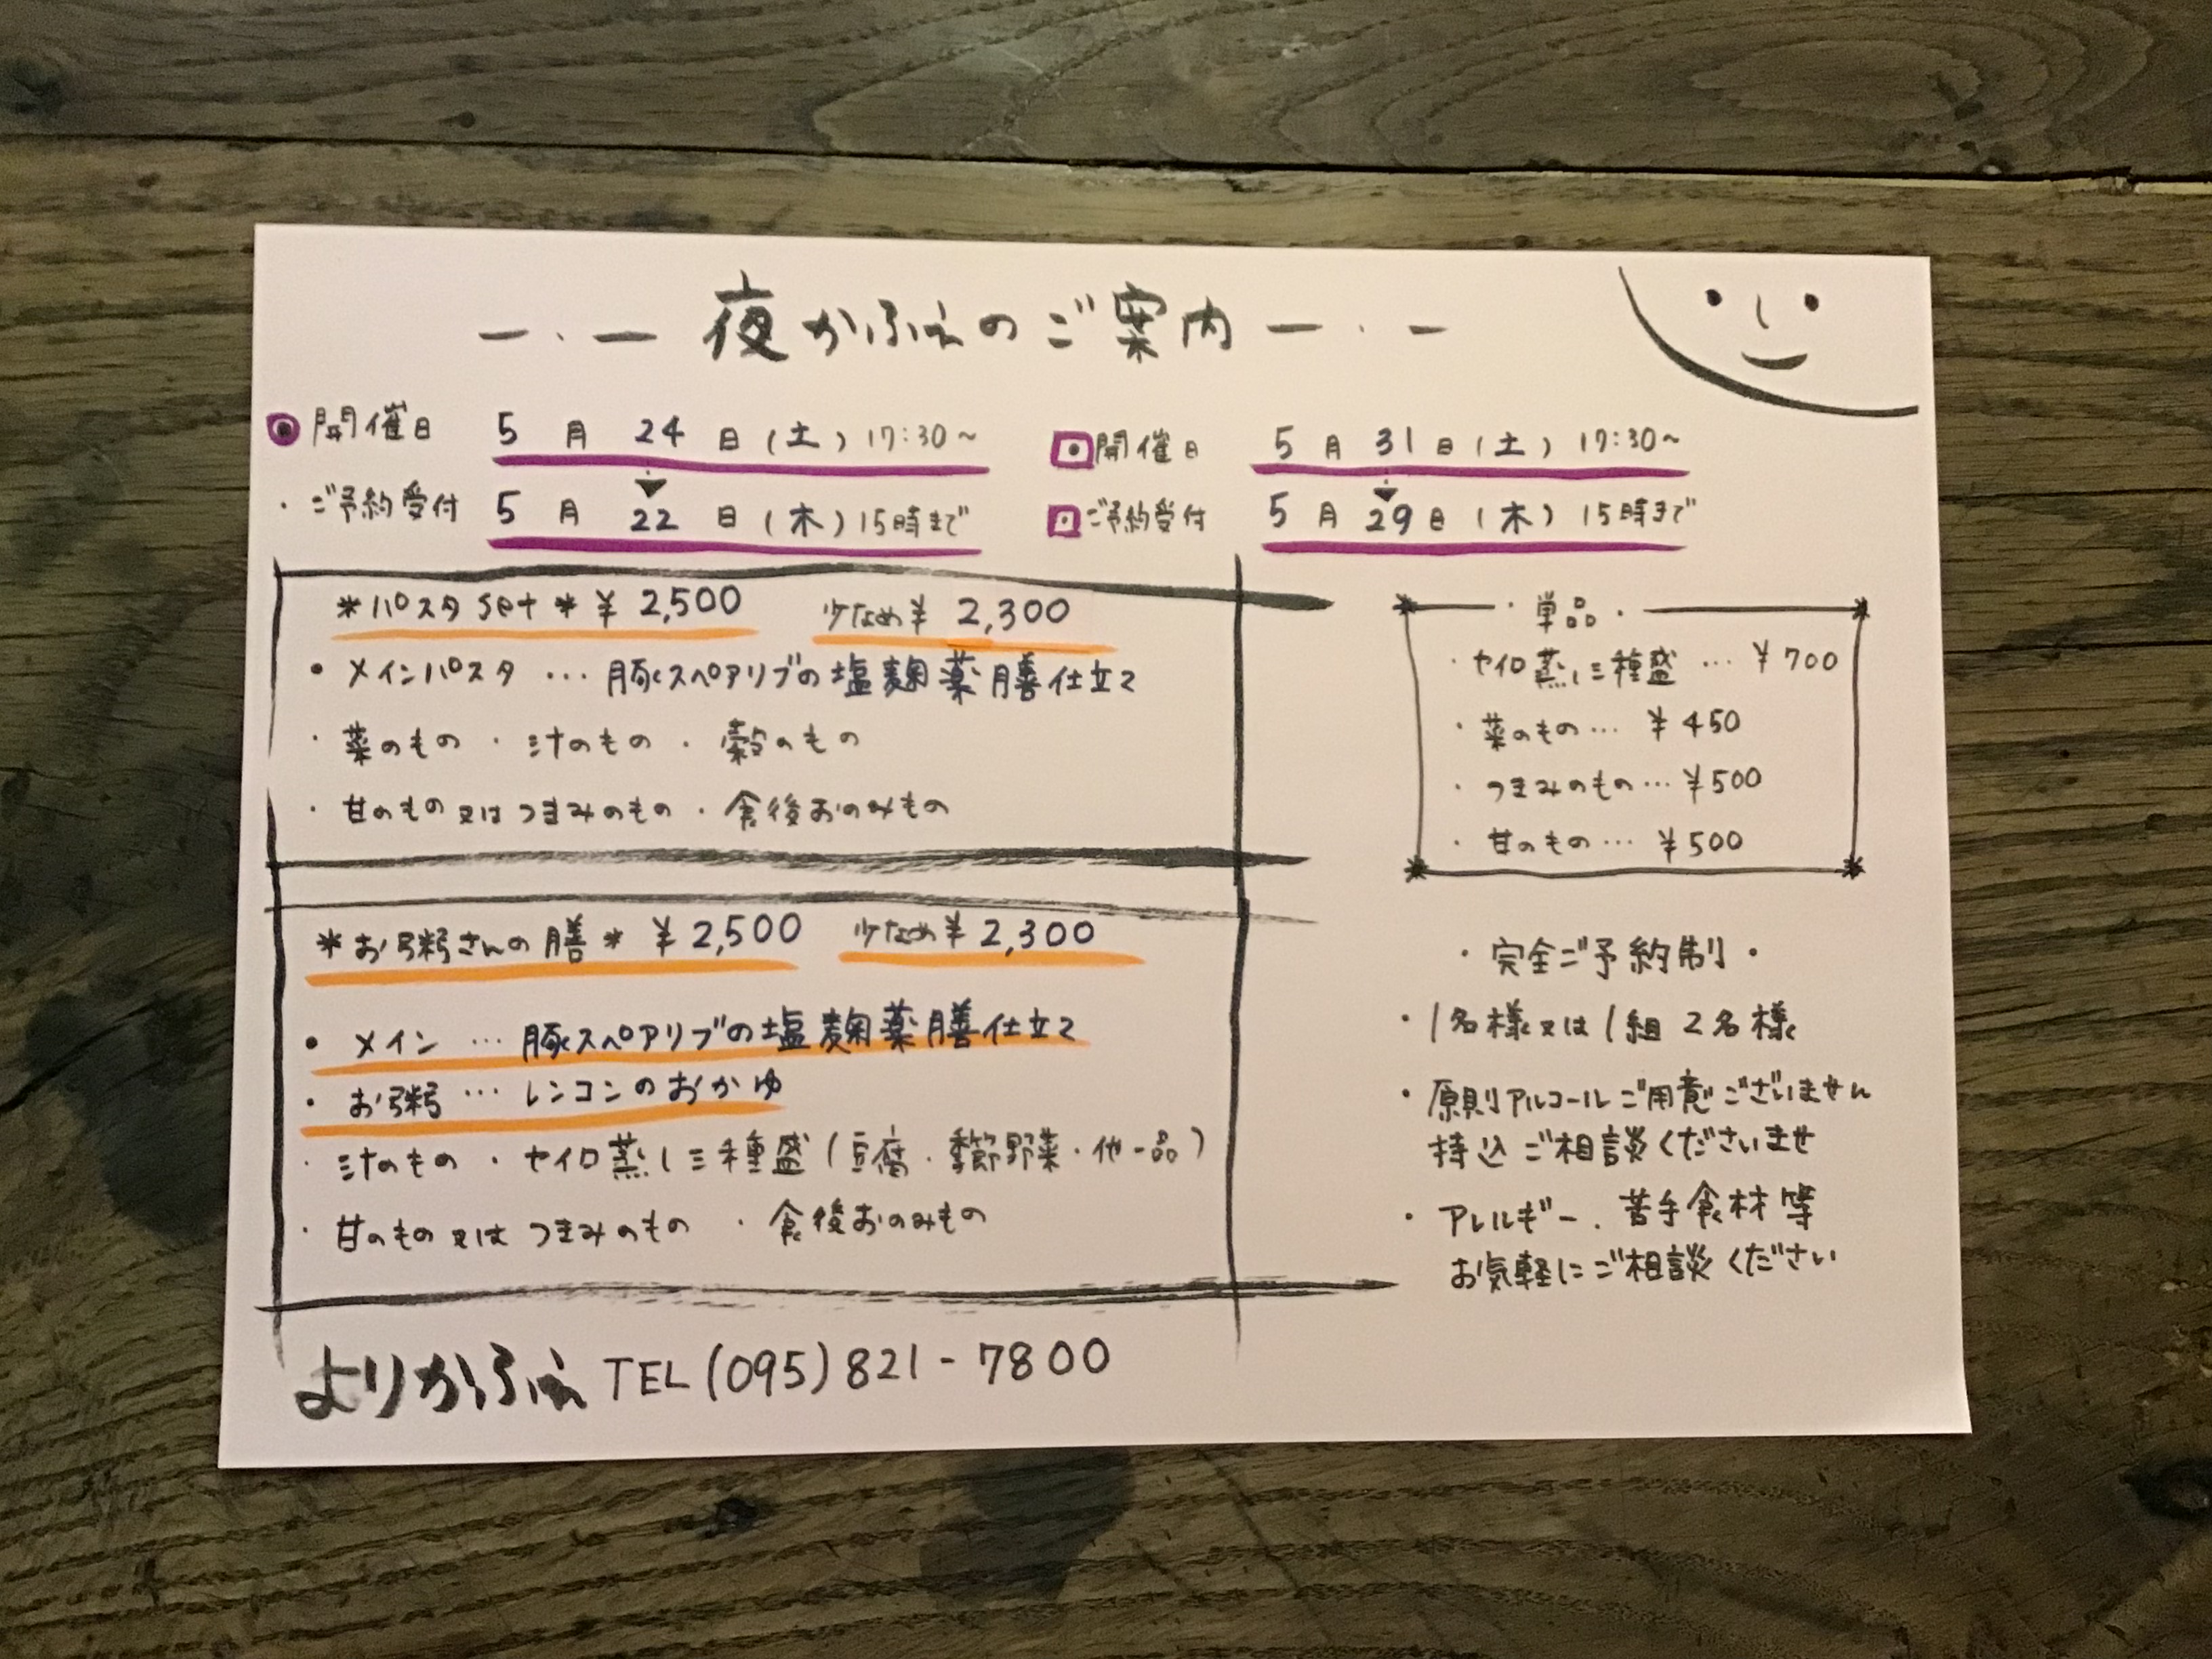 夜かふぇのご案内
開催日 5月24日(土)17:30~
・ご予約受付 5月22日(木)15時まで
開催日 5月31日(土)17:30~
ご予約受付 5月29日(木)15時まで
*パスタset* ¥2,500 少なめ¥2,300
・メインパスタ … 豚スペアリブの塩麹薬膳仕立て
・菜のもの ・汁のもの ・穀のもの
・甘のもの又はつまみのもの ・食後おのみもの
*お粥さんの膳* ¥2,500 少なめ¥2,300
・メイン … 豚スペアリブの塩麹薬膳仕立て
・お粥 … レンコンのおかゆ
・汁のもの ・セイロ蒸し三種盛(豆腐・季節野菜・他一品)
・甘のもの又はつまみのもの ・食後おのみもの
・単品・
・セイロ蒸し三種盛 … ¥700
・菜のもの … ¥450
・つまみのもの … ¥500
・甘のもの … ¥500
・完全ご予約制・
・1名様又は1組2名様
・原則アルコールご用意ございません
持込ご相談くださいませ
・アレルギー、苦手食材等
お気軽にご相談ください
よりかふぇ TEL(095)821-7800